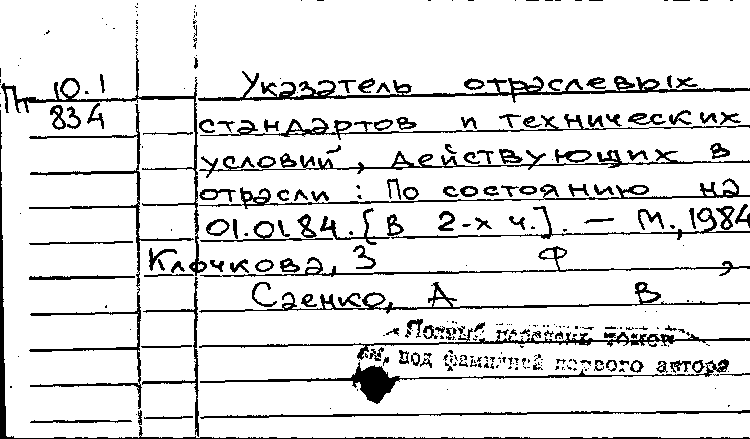 Пт 10.1 Указатель отраслевых
834 стандартов и технических
условий, действующих в
отрасли: По состоянию на
01.01.84. [В 2-х ч.]. — М., 1984
Клочкова, З Ф ,
Саенко, А В
Полный перечень томов
см. под фамилией первого автора